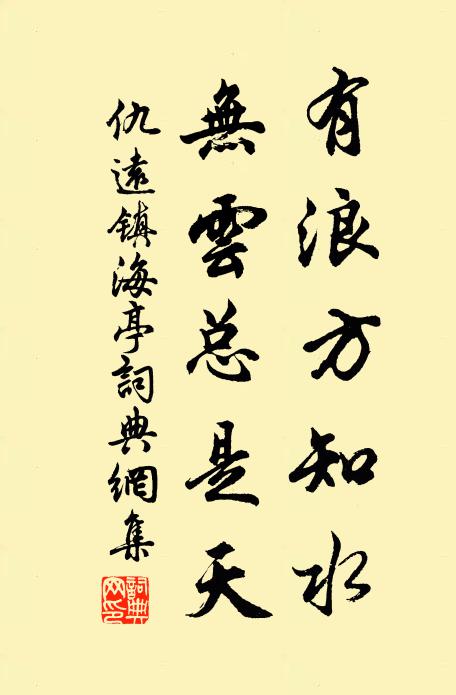 有浪方知水
無雲总是天
仇遠鎮海亭詞典網集
詞典网印